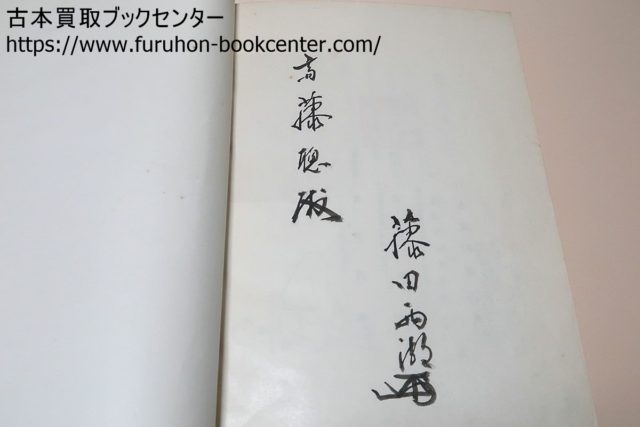 古本買取ブックセンター
https://www.furuhon-bookcenter.com/
藤聰殿
藤田西湖